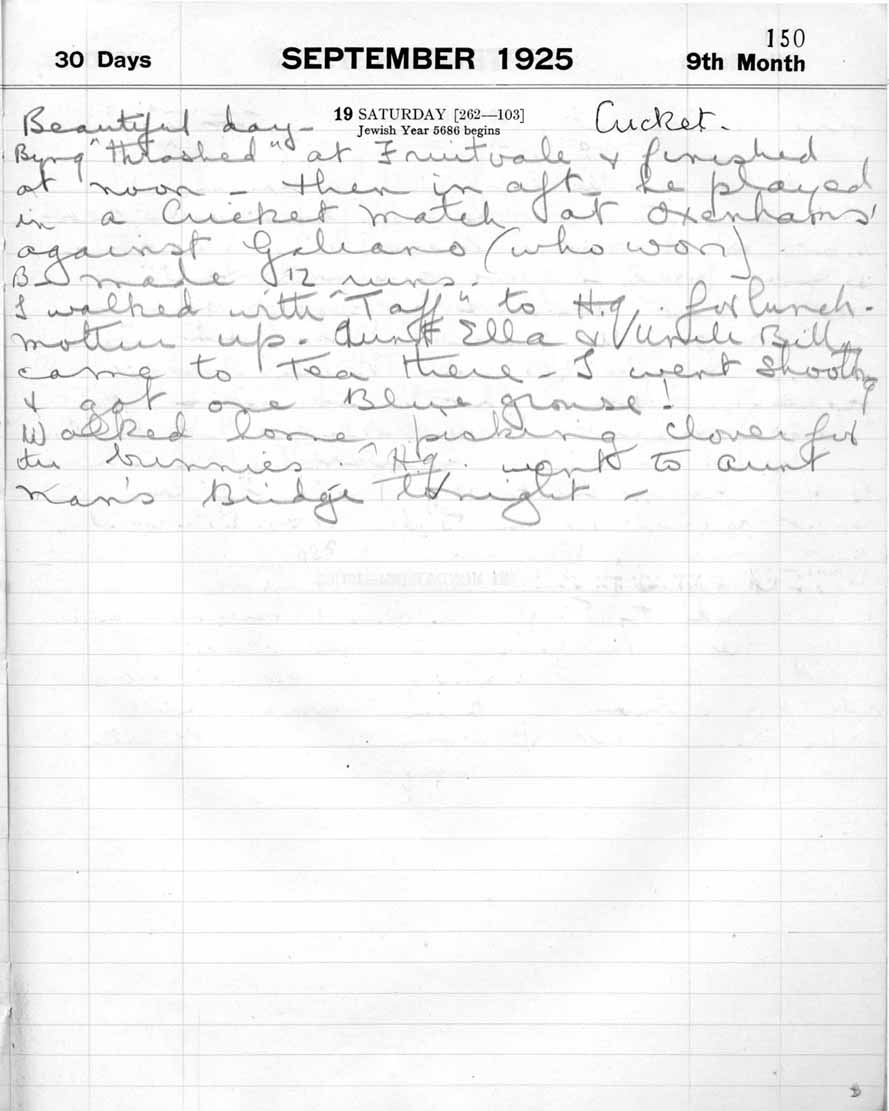 150
30 Days SEPTEMBER 1925 9th Month
19 SATURDAY [262—103]
Jewish Year 5686 begins
Beautiful day – Cricket.
Byng "thrashed" at Fruitvale & finished
at noon – then in aft he played
in a Cricket match at Oxenhams'
against Galiano (who won)
B made 12 runs.
I walked with "Taff" to H.q. for lunch.
Mother up. Aunt Ella & Uncle Bill
came to Tea there – I went shooting
& got one Blue grouse!
Walked home picking clover for
the bunnies. H.q. went to Aunt
Nan's Bridge tonight –